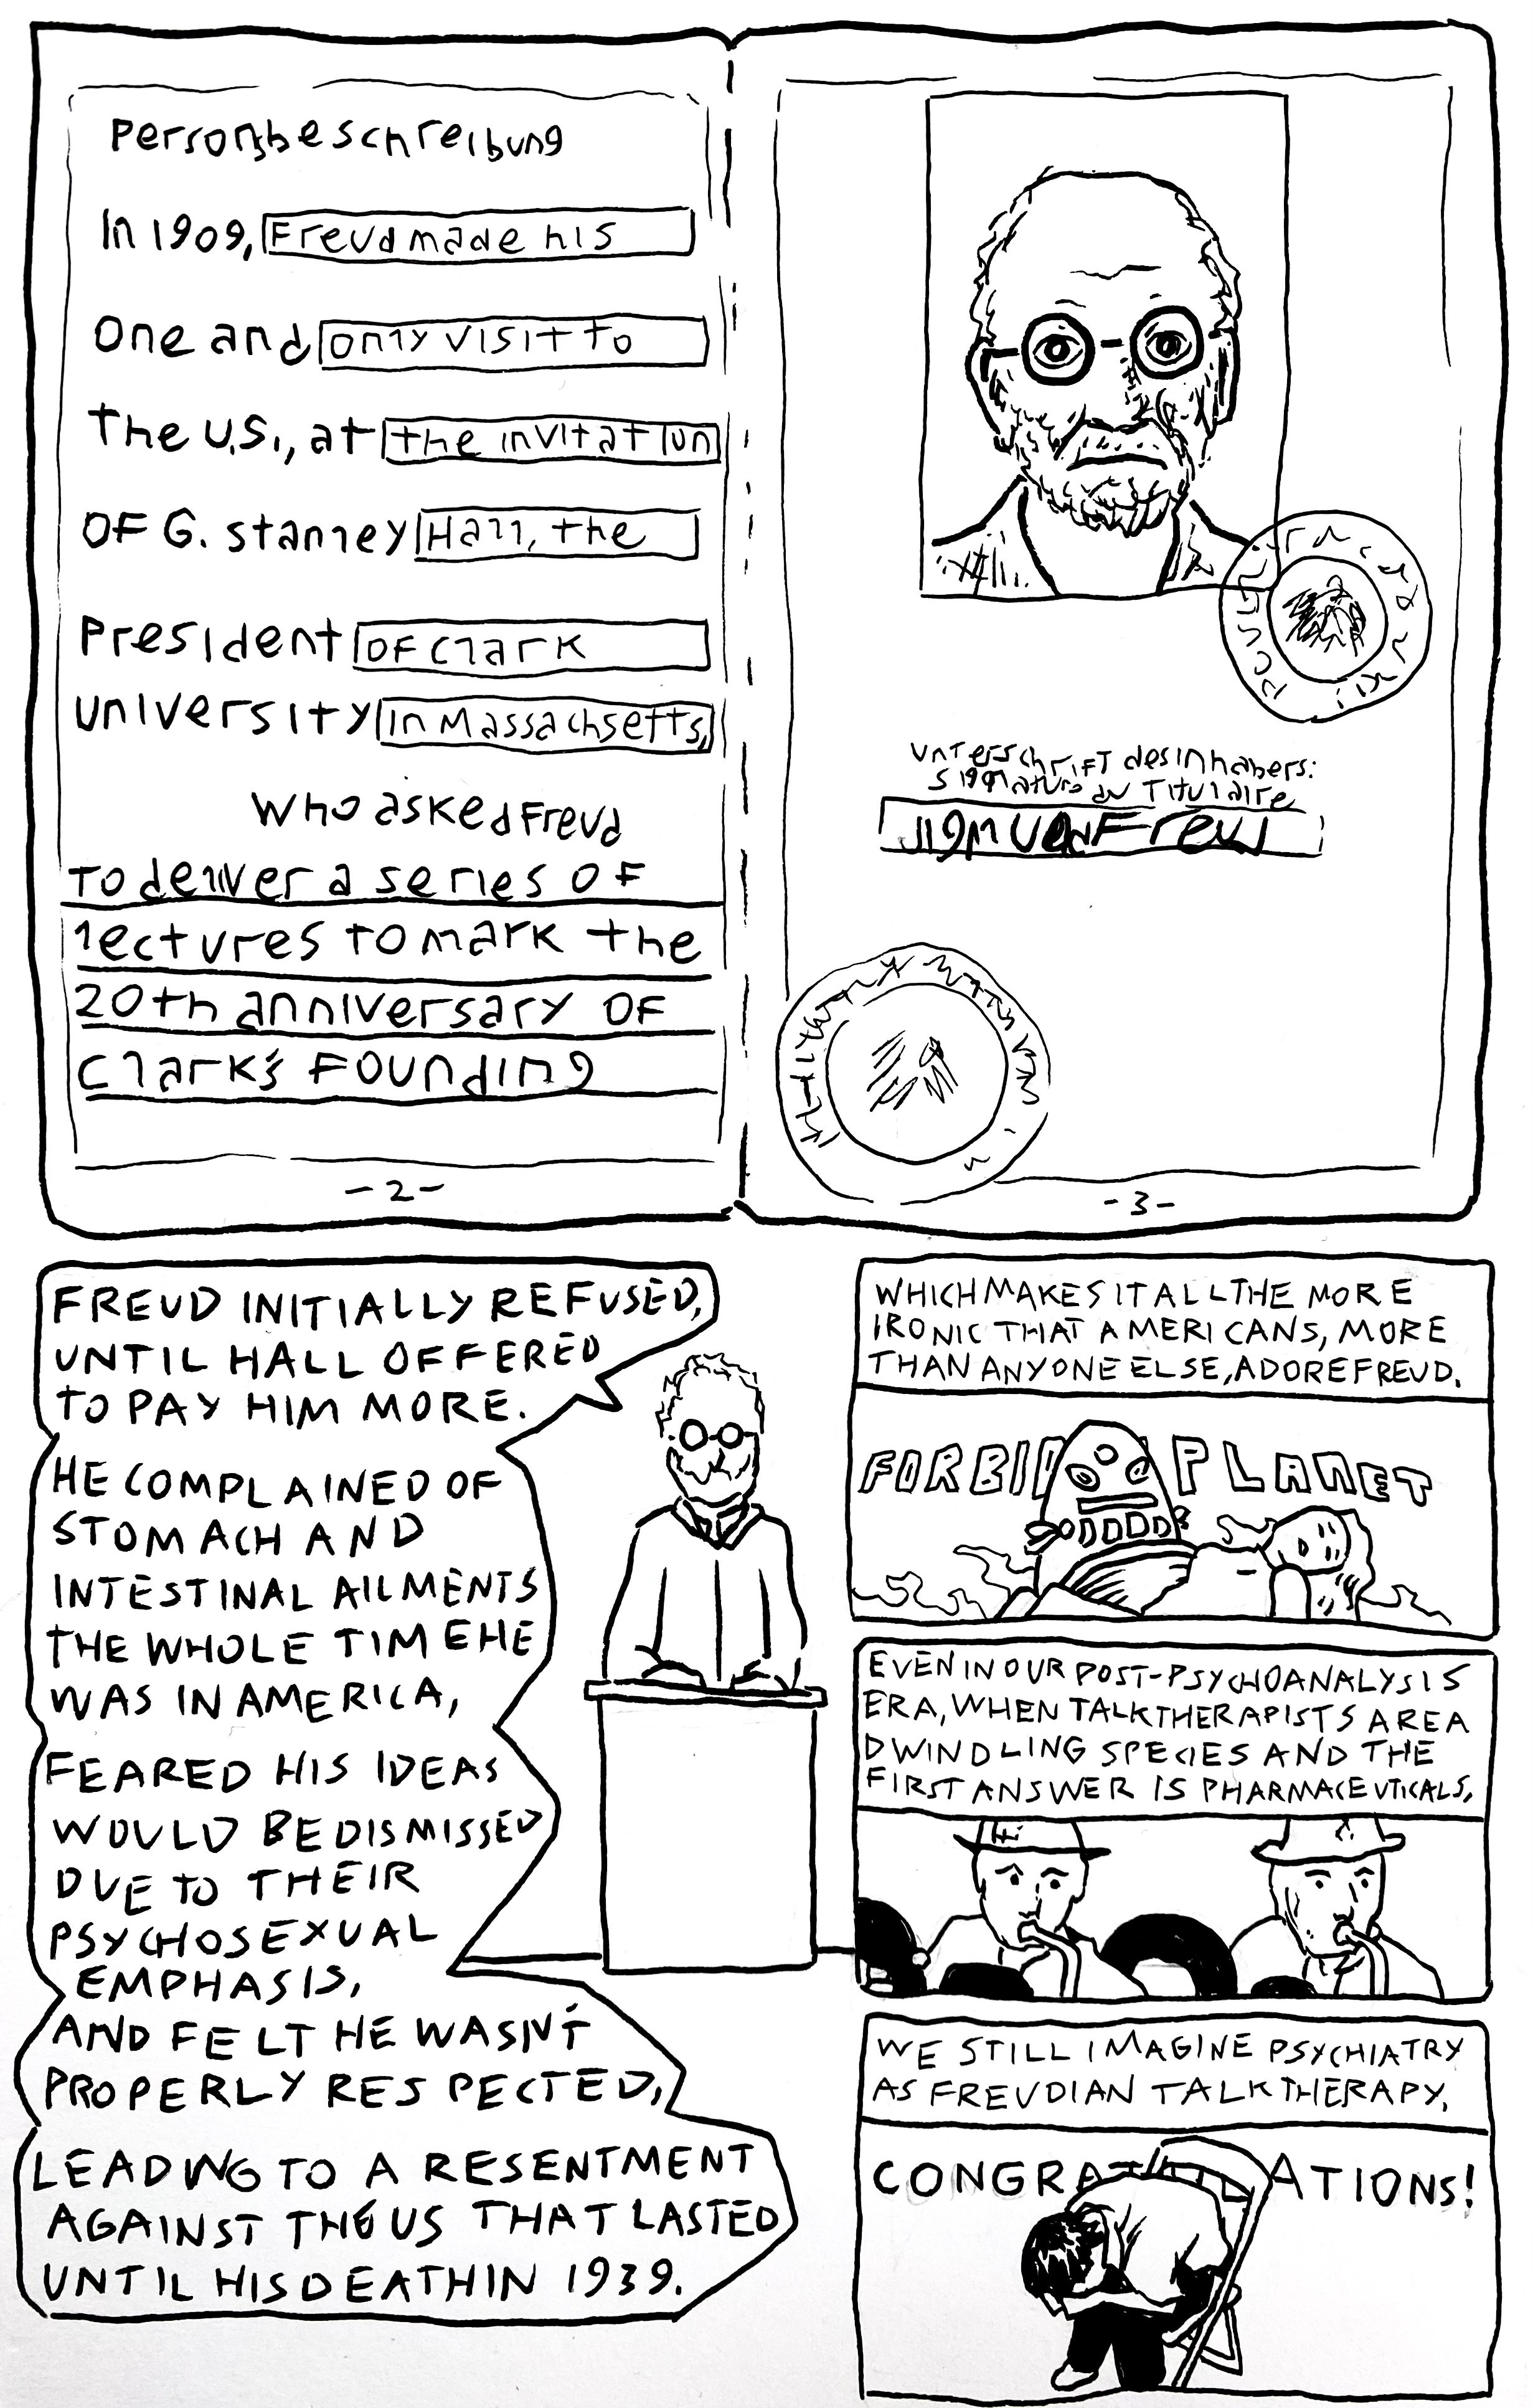 Personsbeschreibung
In 1909, Freud made his
one and only visit to
the U.S., at the invitation
of G. Stanley Hall, the
president of Clark
university in Massachsetts,
who asked Freud
to deliver a series of
lectures to mark the
20th anniversary of
Clark's founding
-2-
Unterschrift des Inhabers:
Signature du Titulaire
Sigmund Freud
-3-
FREUD INITIALLY REFUSED,
UNTIL HALL OFFERED
TO PAY HIM MORE.
HE COMPLAINED OF
STOMACH AND
INTESTINAL AILMENTS
THE WHOLE TIME HE
WAS IN AMERICA,
FEARED HIS IDEAS
WOULD BE DISMISSED
DUE TO THEIR
PSYCHOSEXUAL
EMPHASIS,
AND FELT HE WASN'T
PROPERLY RESPECTED,
LEADING TO A RESENTMENT
AGAINST THE US THAT LASTED
UNTIL HIS DEATH IN 1939.
WHICH MAKES IT ALL THE MORE
IRONIC THAT AMERICANS, MORE
THAN ANYONE ELSE, ADORE FREUD.
FORBID PLANET
EVEN IN OUR POST-PSYCHOANALYSIS
ERA, WHEN TALK THERAPISTS ARE A
DWINDLING SPECIES AND THE
FIRST ANSWER IS PHARMACEUTICALS,
WE STILL IMAGINE PSYCHIATRY
AS FREUDIAN TALK THERAPY.
CONGRATULATIONS!